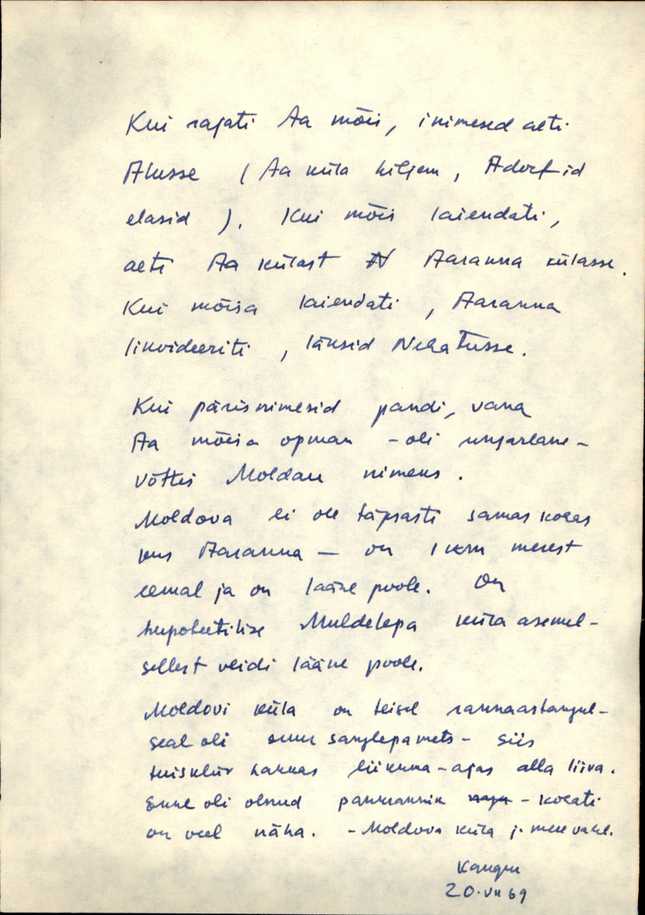 Kui rajati Aa mõis, inimesed aeti
Alusse (Aa küla hiljem, Adorfid
elasid). Kui mõis laiendati,
aeti Aa külast Aaranna külasse.
Kui mõisa laiendati, Aaranna
likvideeriti, läksid Nehatusse.
Kui pärisnimesid pandi, vana
Aa mõisa opman - oli ungarlane -
võttis Moldau nimeks.
Moldova ei ole täpsasti samas kohas
kus Aaranna - on 1 km merest
eemal ja on lääne poole. On
hüpoteetilise Muldelepa küla asemel -
sellest veidi lääne poole.
Moldovi küla on teisel rannaastangul -
seal oli suur sanglepamets - siis
tuiskliiv hakkas liikuma - ajas alla liiva.
Enne oli olnud pankrannik - kohati
on veel näha. - Moldova küla j. mere vahel.
20.VII 69